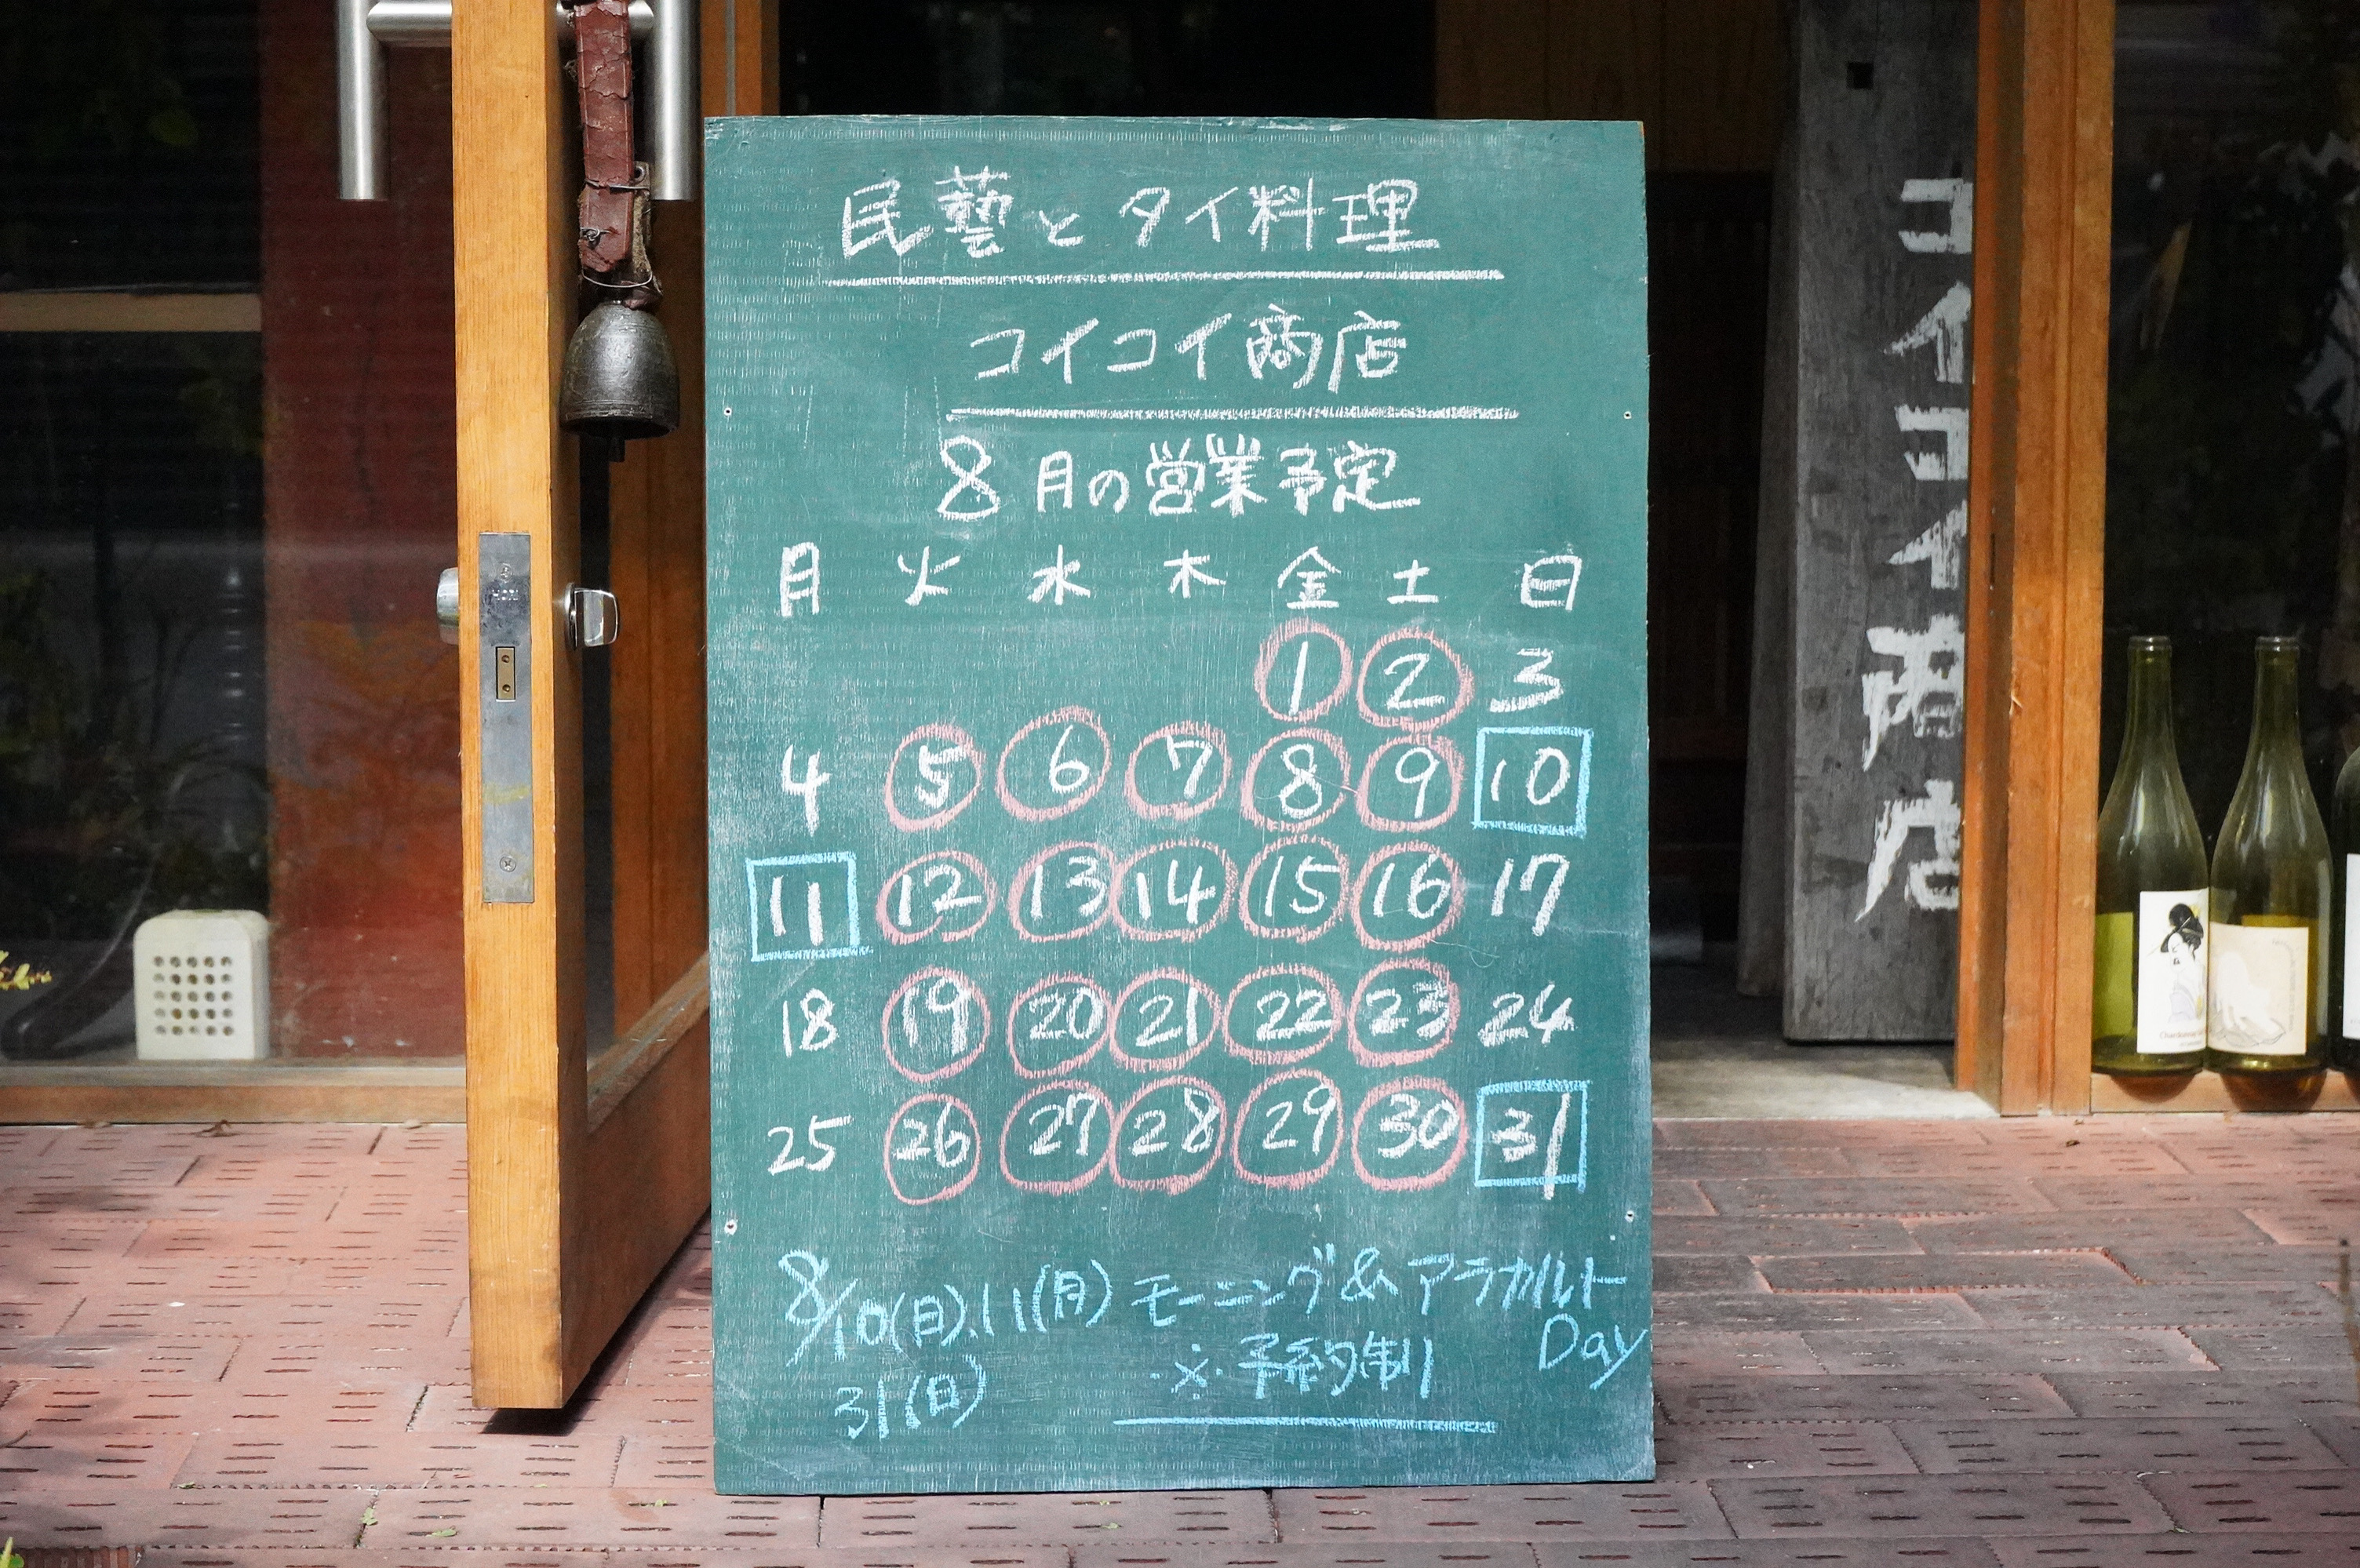 民藝とタイ料理
コイコイ商店
8月の営業予定
月 火 水 木 金 土 日
1 2 3
4 5 6 7 8 9 10
11 12 13 14 15 16 17
18 19 20 21 22 23 24
25 26 27 28 29 30 31
8/10(日).11(月) モーニング&アラカルト
Day
31(日) ※予約制
コイコイ商店